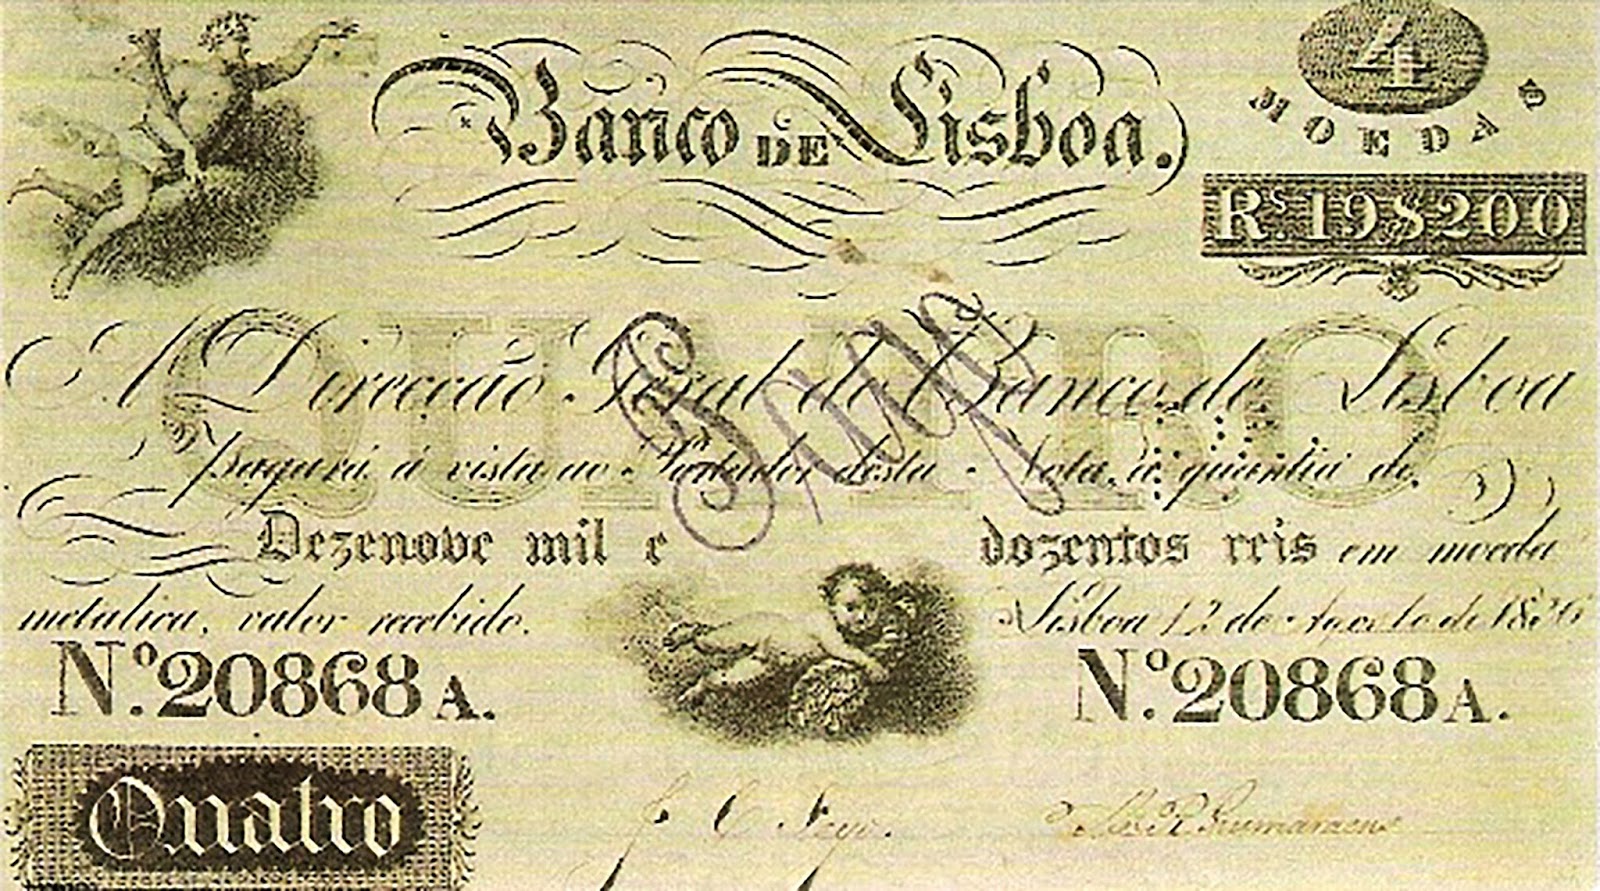 Banco DE Lisboa.
4
MOEDAS
Rs. 19$200
QUATRO
A Direcção Geral do Banco de Lisboa
pagará á vista ao Portador desta Nota, a quantia de
Dezenove mil e dozentos reis em moeda
metalica, valor recebido. Lisboa 12 de Agosto de 1826
Nº. 20868 A. Nº. 20868 A.
Quatro